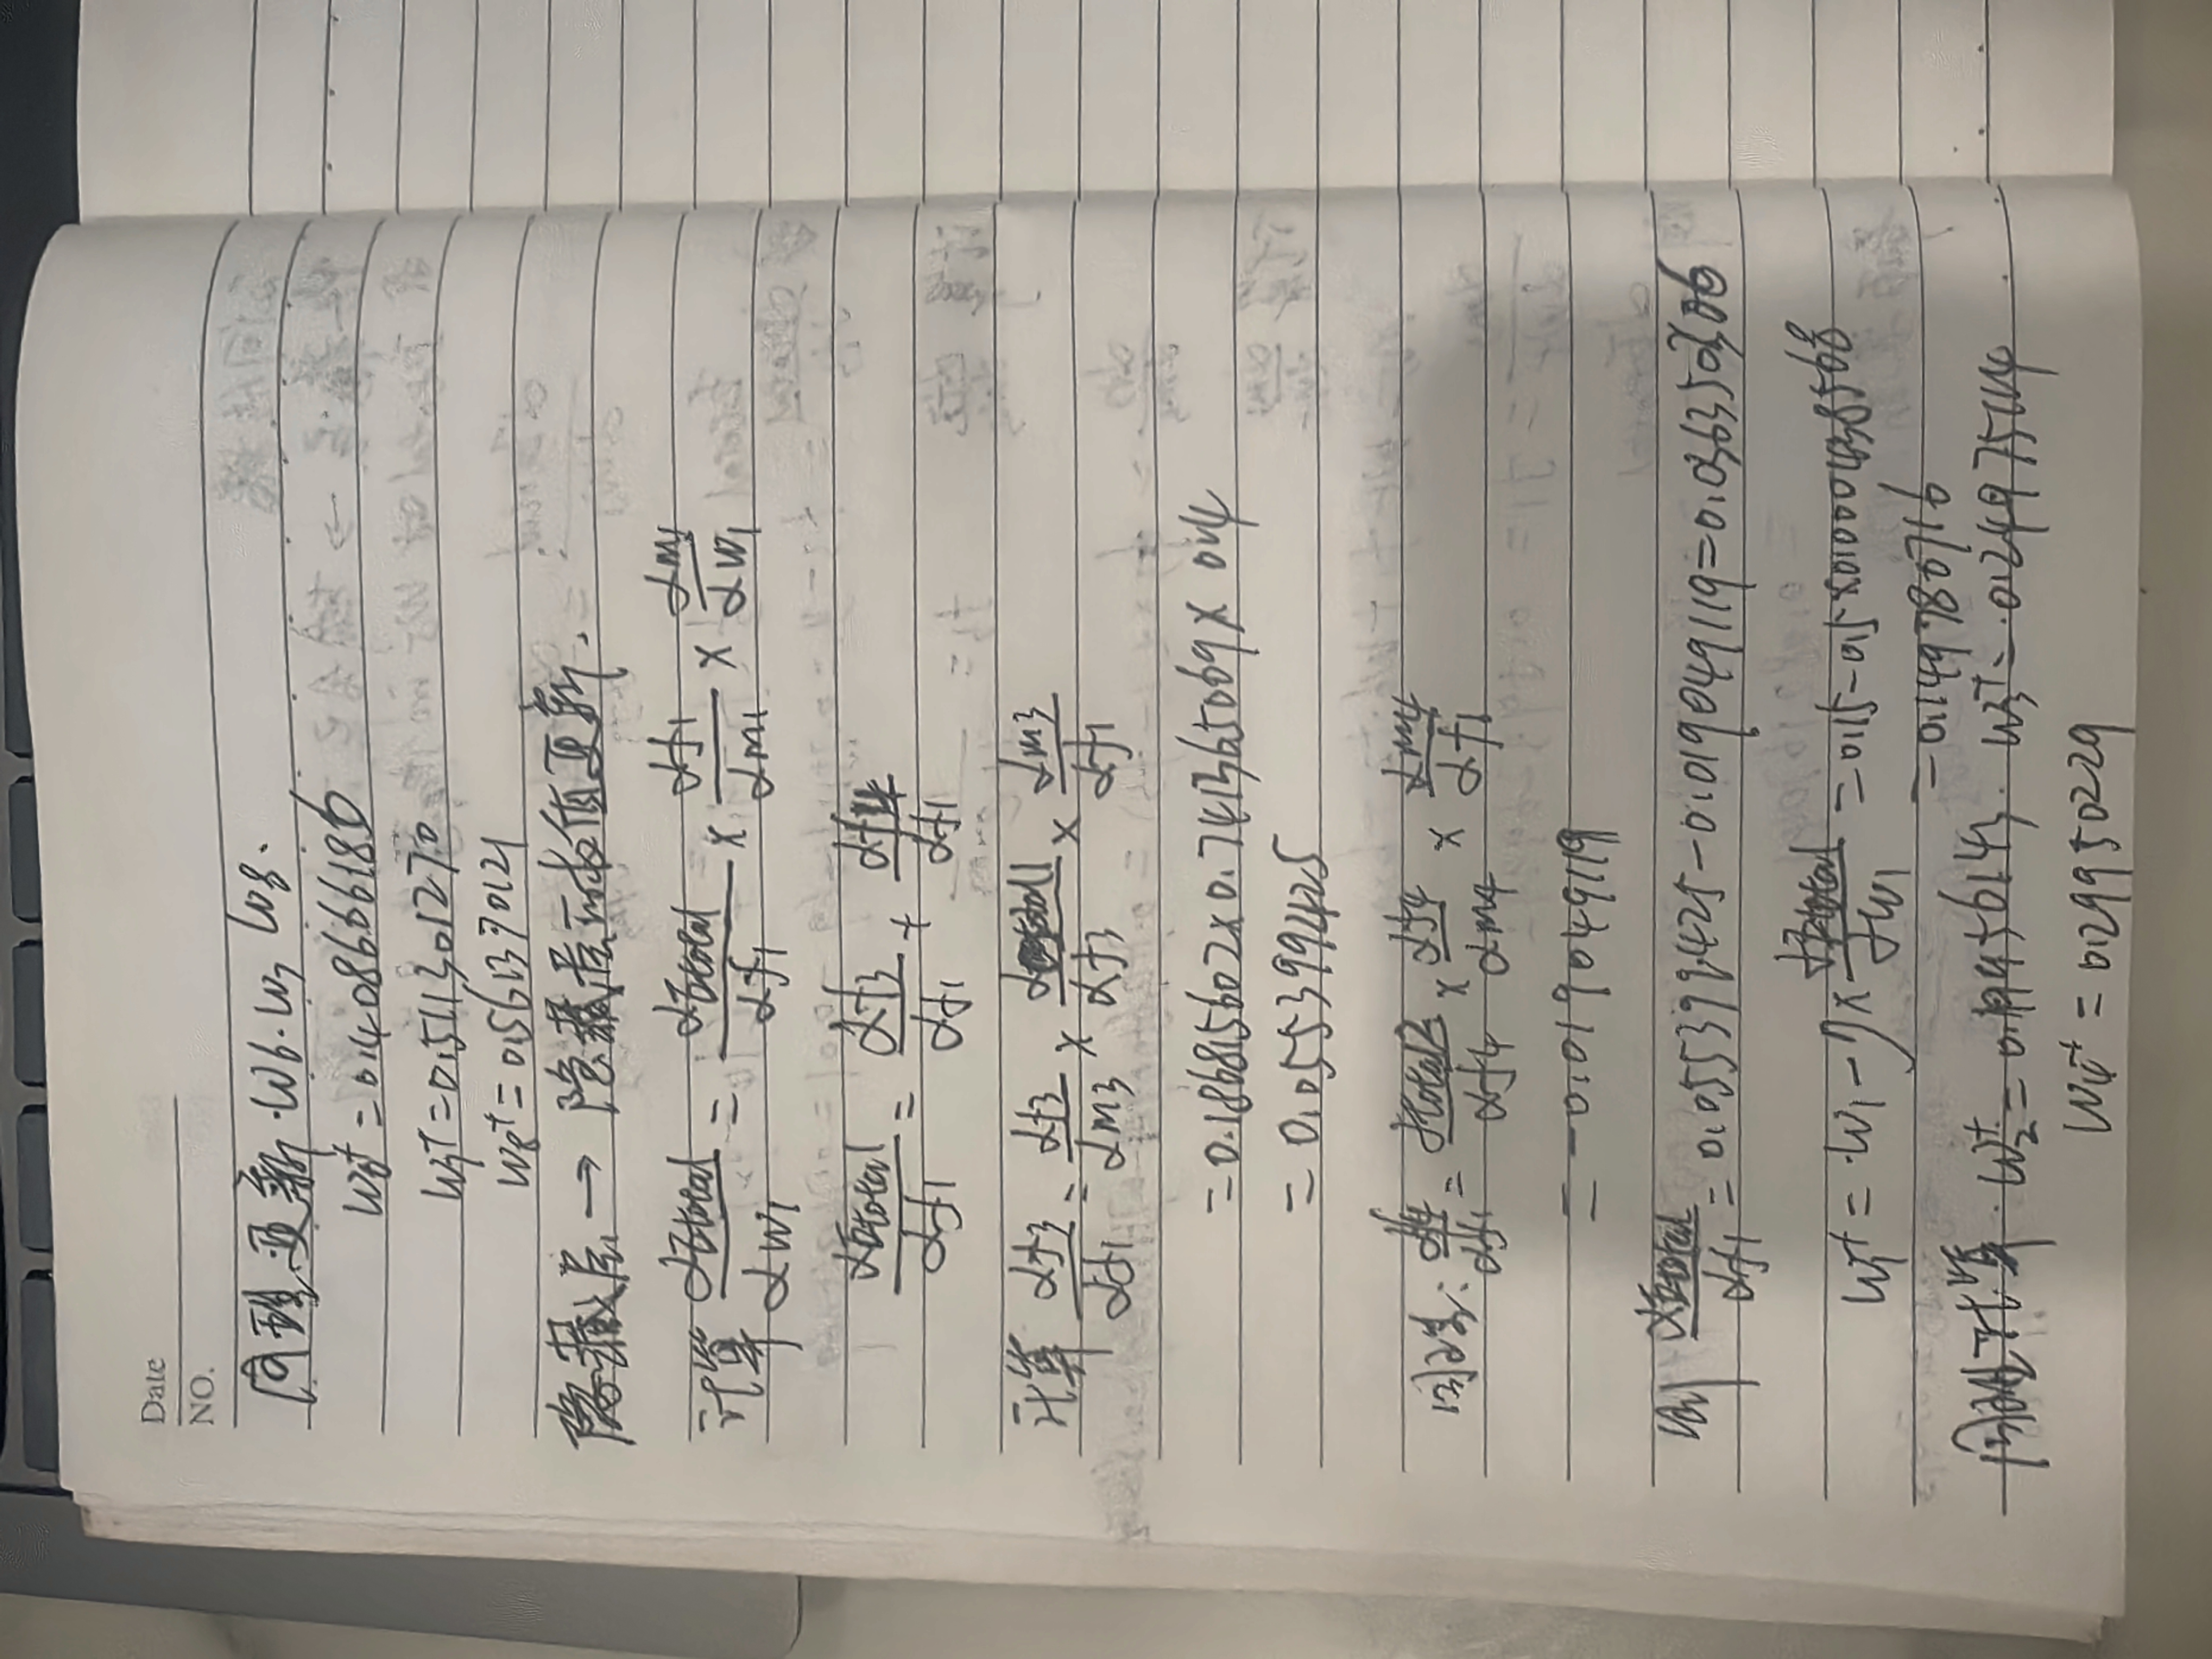 Date
NO.
同理更新·W6·W7 W8.
W6⁺ = 0.408666186
W7⁺ = 0.511301270
W8⁺ = 0.561370121
隐藏层 → 隐藏层的权值更新.
计算 αEtotal/αW1 = αEtotal/αf1 × αf1/αm1 × αm1/αW1
αEtotal/αf1 = αf3/αf1 + αf4/αf1
计算 αf3/αf1 = αf3/αm3 × αtotal1/αf3 × αm3/αf1
= 0.186815602 × 0.741365069 × 0.4
= 0.055399425
同理: αf4/αf1 = αtotal2/αf4 × αf4/αm4 × αm4/αf1
= -0.019049119
则 αEtotal/αf1 = 0.055399425 - 0.019049119 = 0.036350306
W1⁺ = ·W1 - η × αEtotal/αW1 = 0.15 - 0.5 × 0.000438568
= 0.149780716
同理计算·W2⁺ = 0.19956143. W3⁺ = ·0.24975114
W4⁺ = 0.29950229